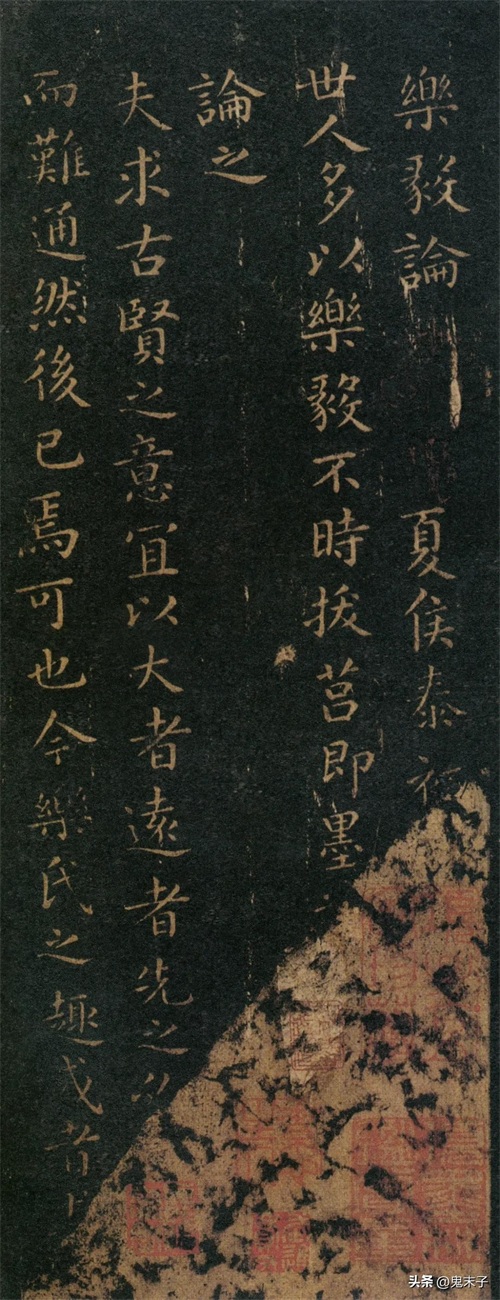 樂毅論 夏侯泰初
世人多以樂毅不時拔莒即墨
論之
夫求古賢之意宜以大者遠者先之必
而難通然後已焉可也今樂氏之趣或者
头条 @鬼末子